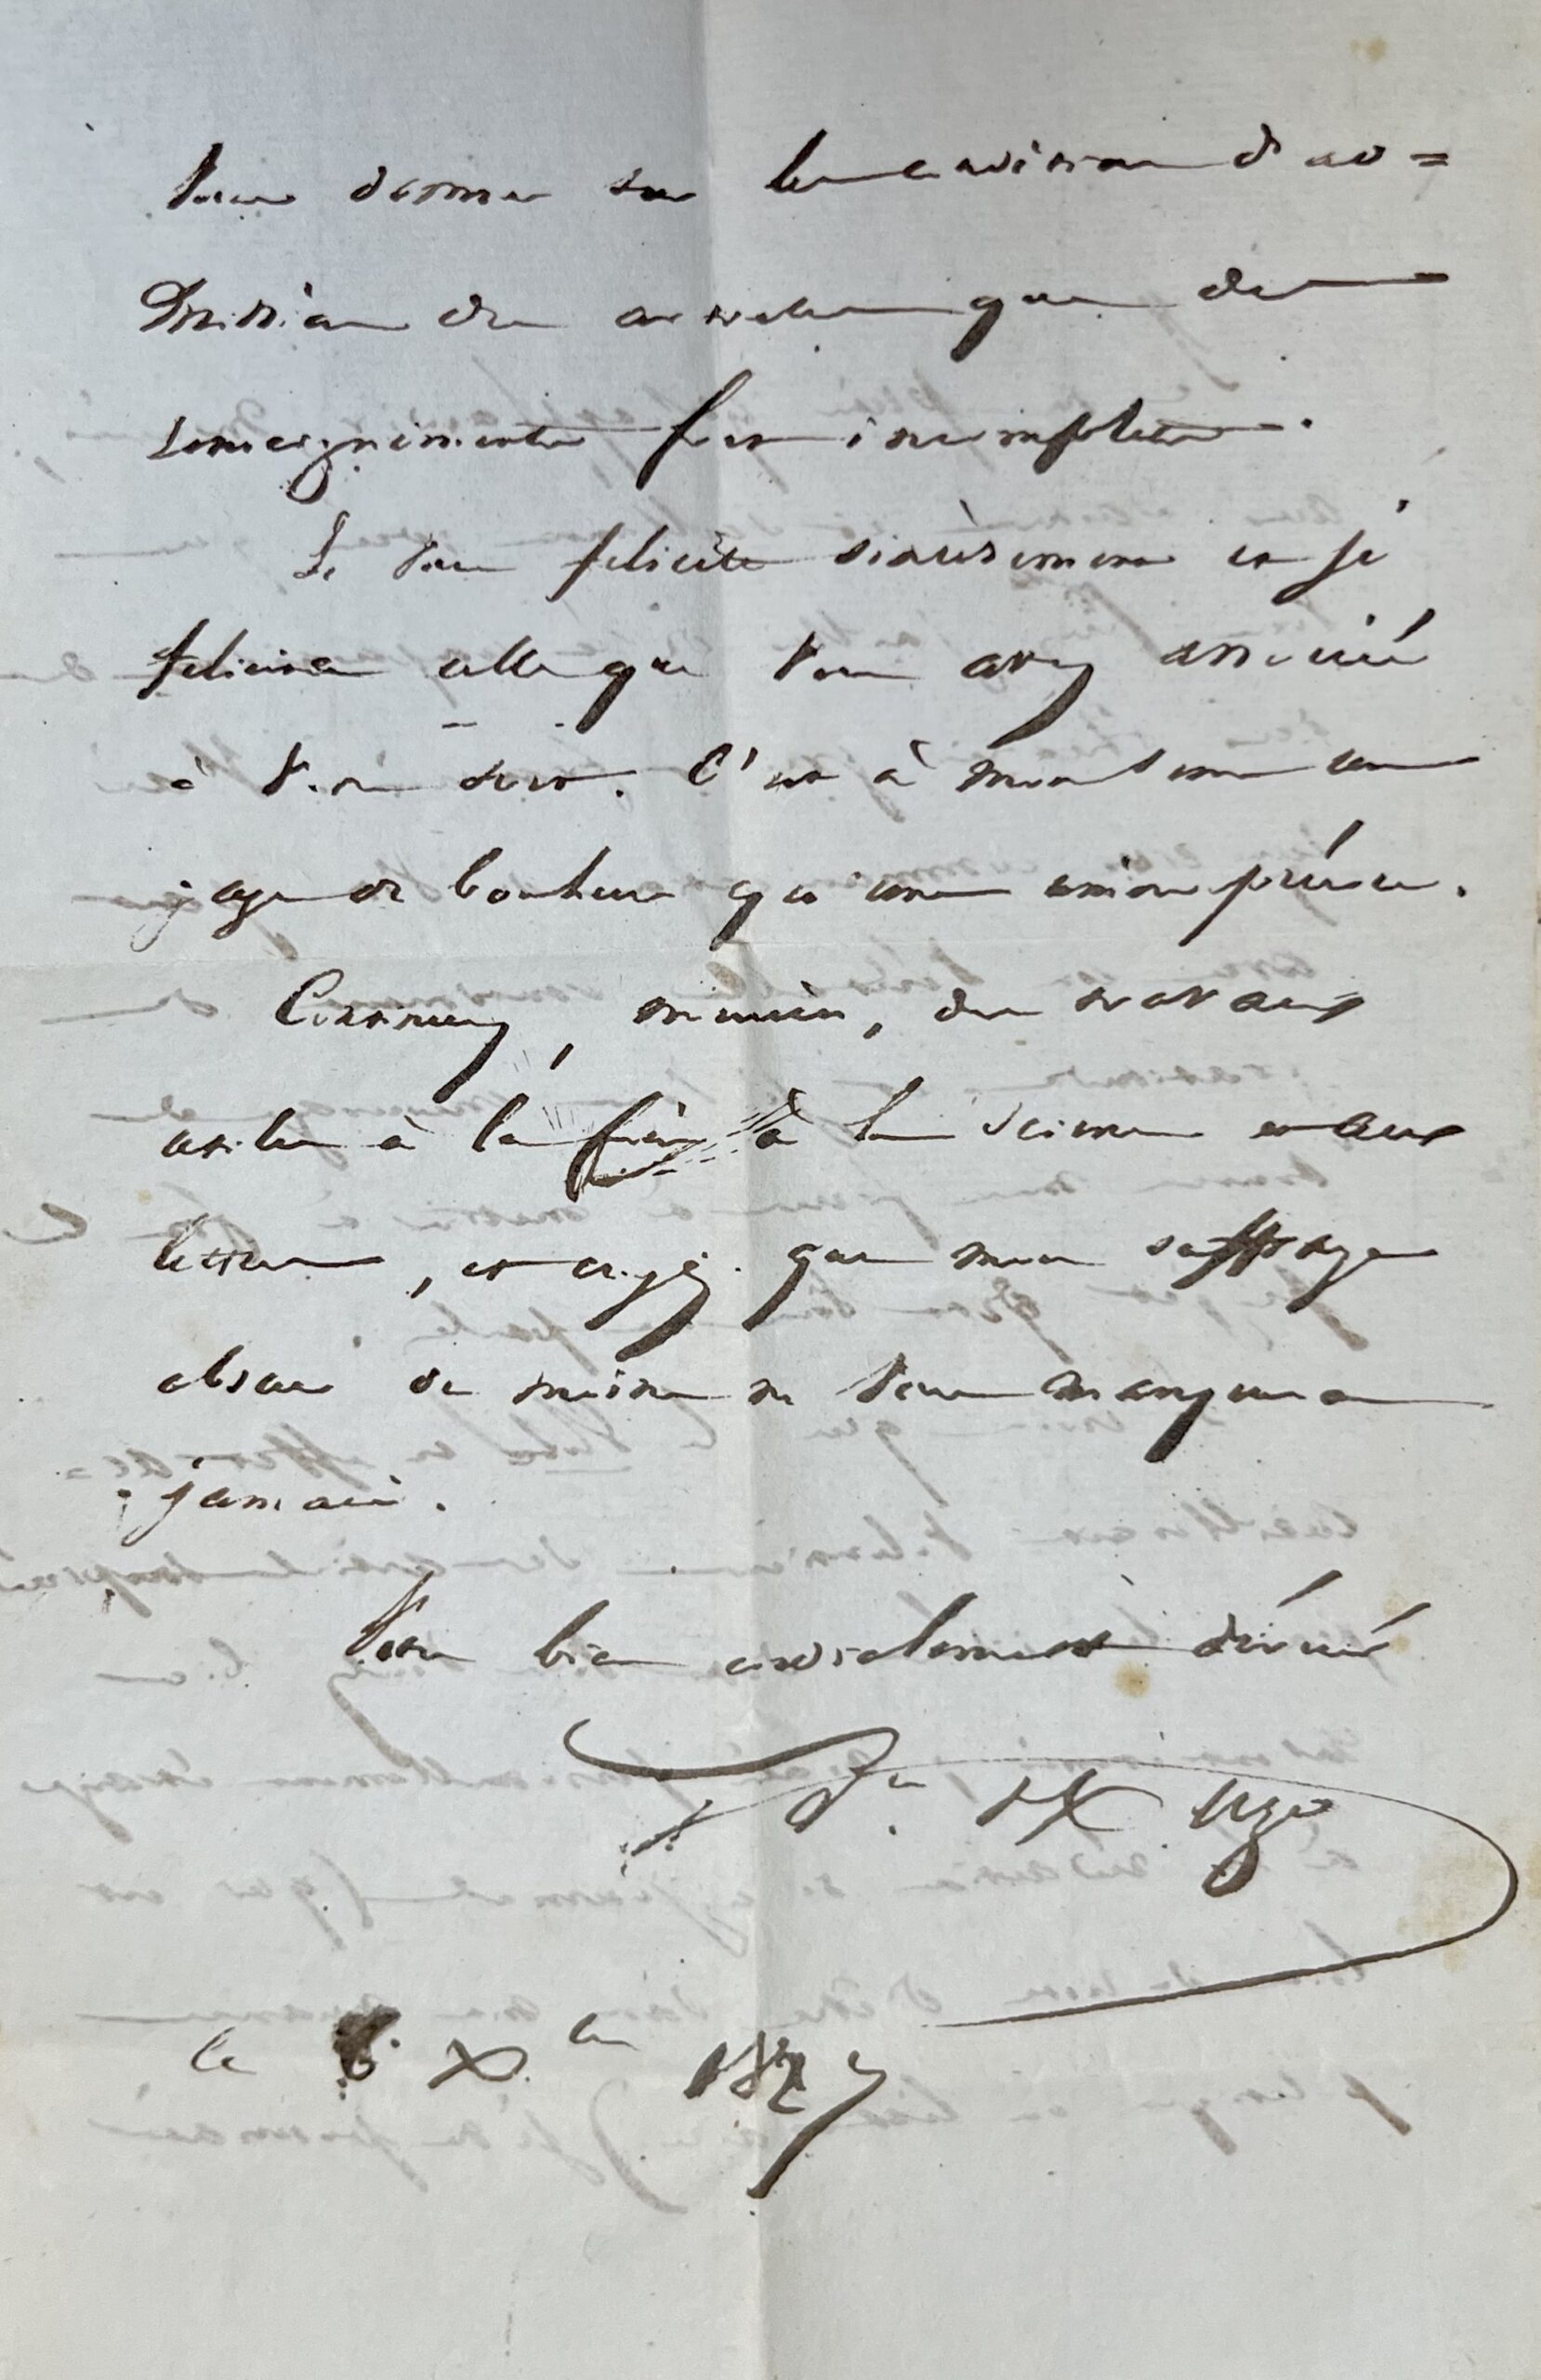 vous donner sur les conditions d'ad=
mission des auteurs que des
renseignements fort incomplets.
Je vous felicite sincèrement et je
felicite celle que vous avez associé
à votre sort. C'est à mon sens un
gage de bonheur qu'une union pareille.
Continuez, monsieur, des travaux
utiles à la fois à la science et aux
lettres, et croyez que mon suffrage
obscur du moins ne vous manquera
jamais.
Votre bien cordialement dévoué
le 6 Xbre 1877